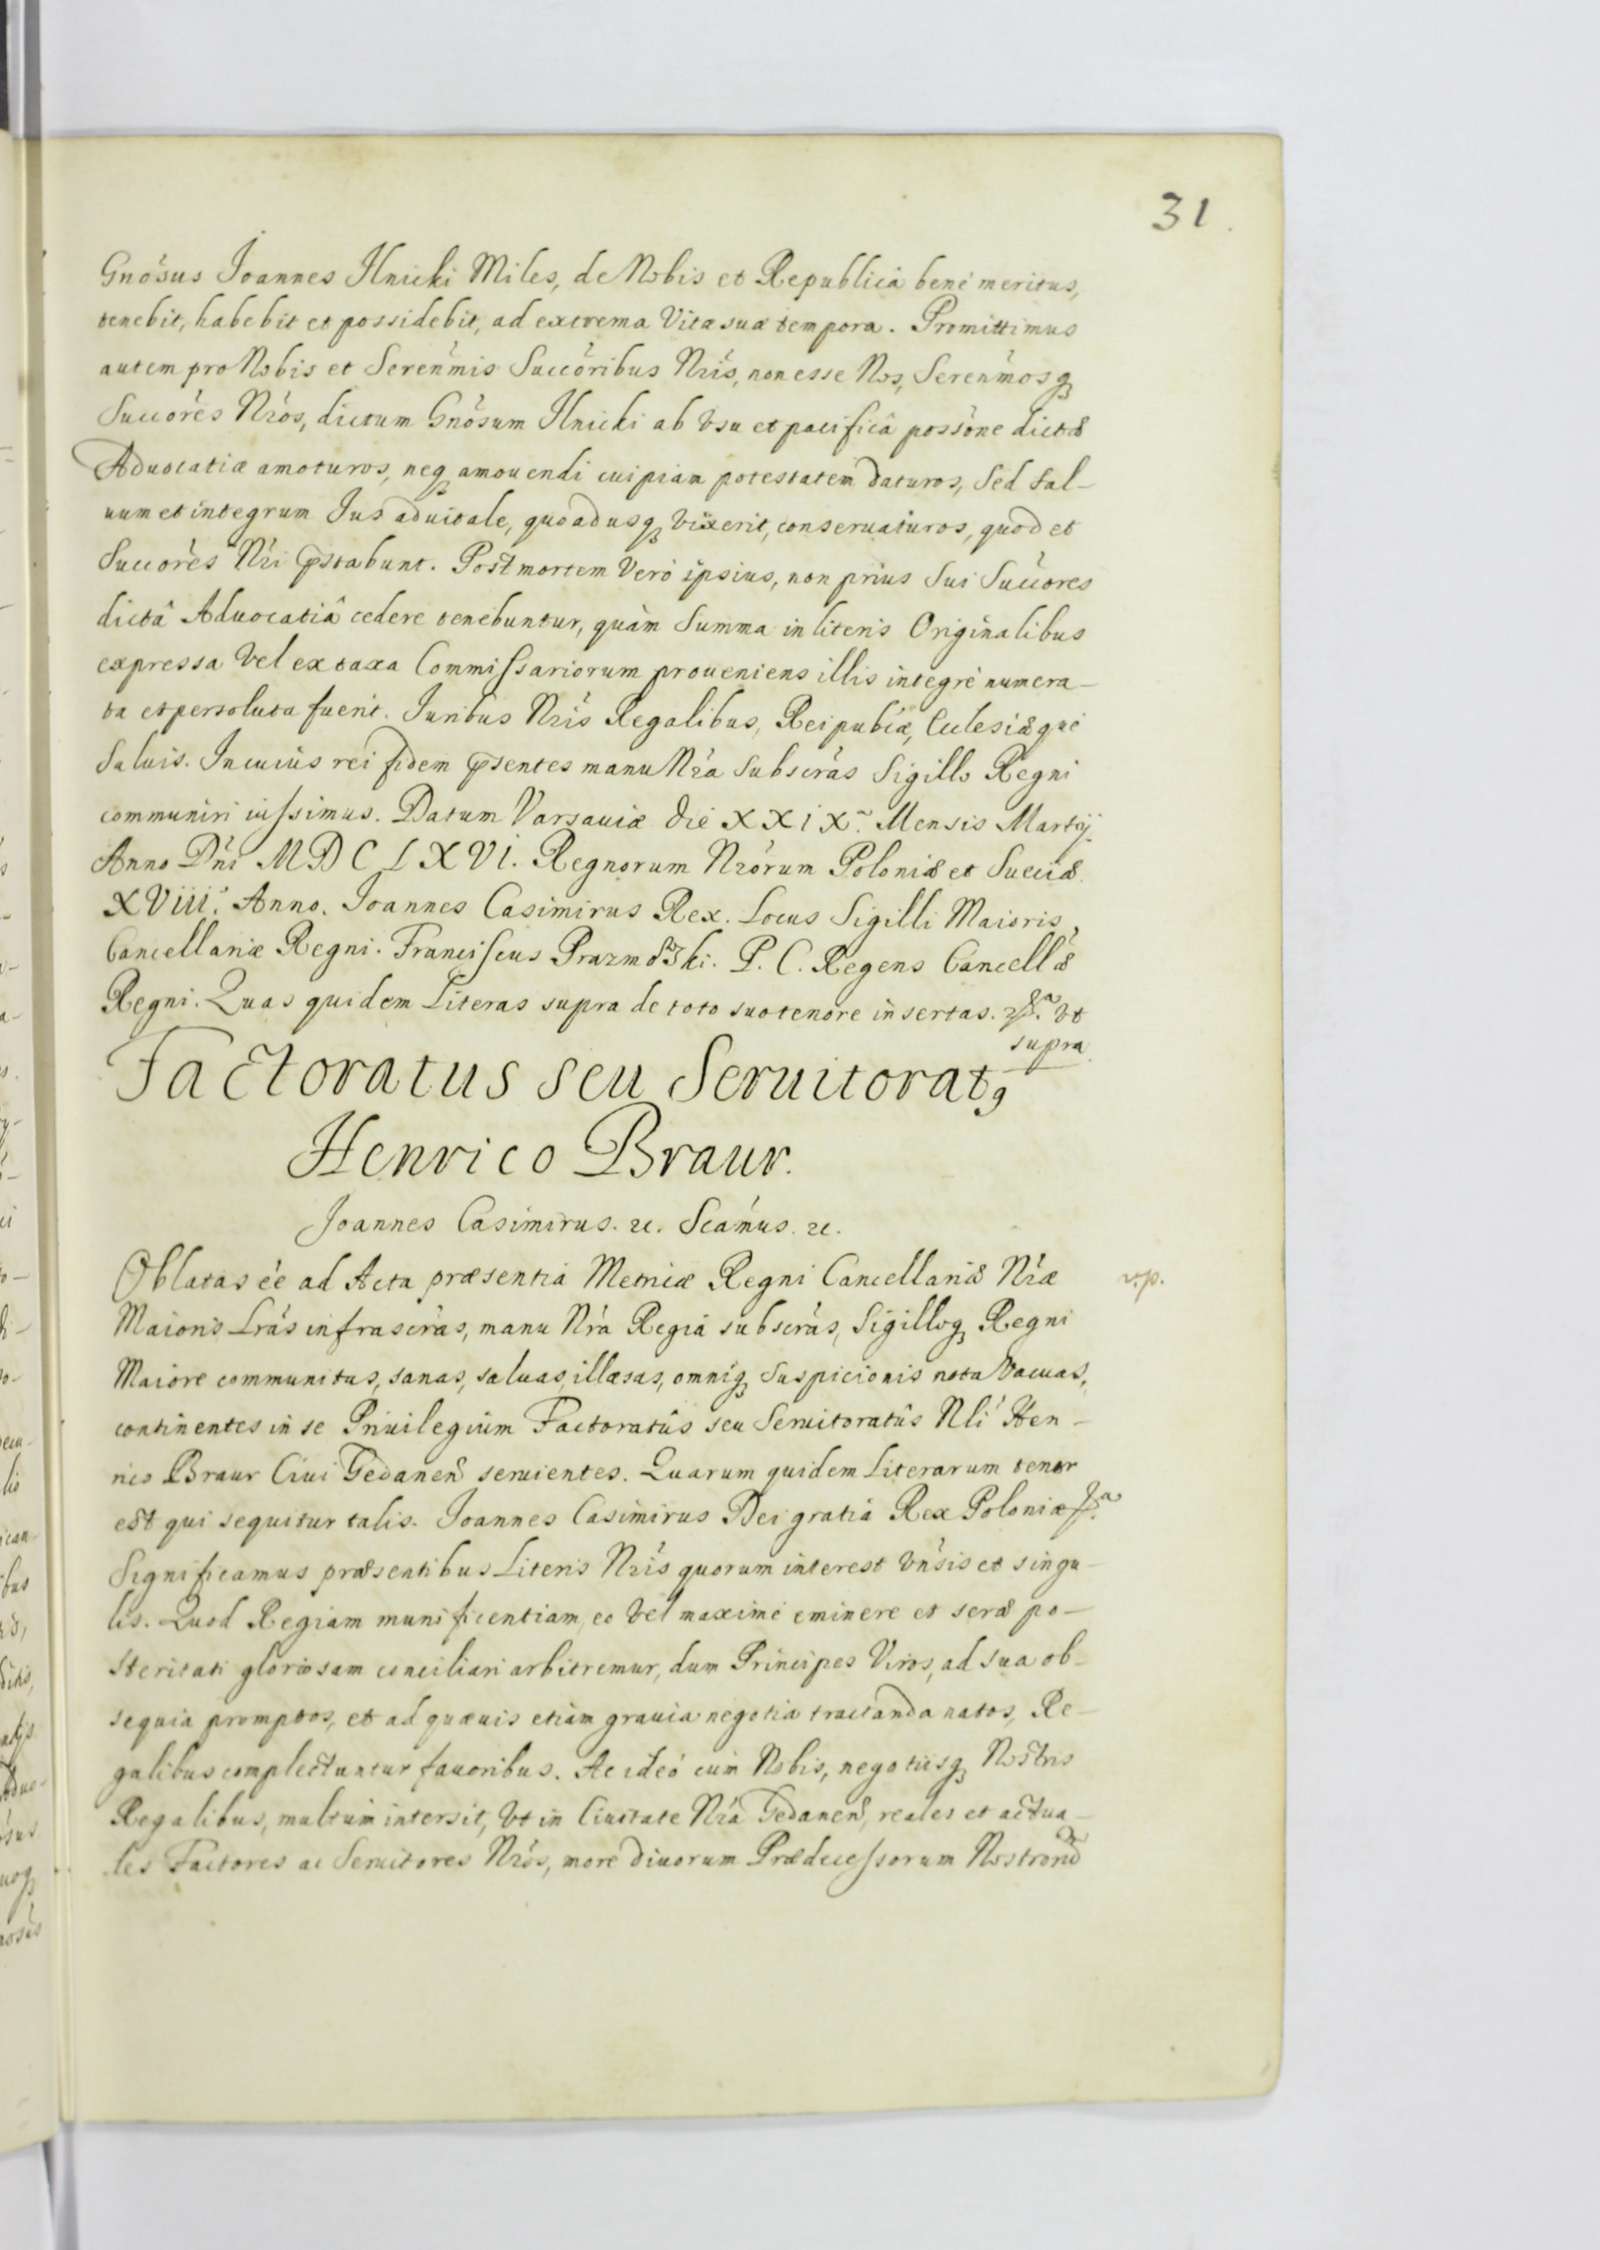 31
Gnósus Joannes Ilnicki Miles, de Nobis et Republicâ benè meritus,
tenebit, habebit et possidebit, ad extrema Vitæ suæ tempora. Promittimus
autem pro Nobis et Serenmis Succóribus Nris, non esse Nos, Serenmosq
Succóres Nros, dictum Gnósum Ilnicki ab Vsu et pacificâ possóne dictæ
Aduocatiæ amoturos, neq amouendi cuipiam potestatem daturos, Sed sal-
uum et integrum Jus aduitale, quoadusq vixerit, conseruaturos, quod et
Succóres Nri pstabunt. Post mortem Verò ipsius, non prius Sui Succores
dictâ Aduocatiâ cedere tenebuntur, quàm Summa in literis Originalibus
expressa Vel ex taxa Commissariorum proueniens illis integrè numera-
ta et persoluta fuerit. Juribus Nris Regalibus, Reipublæ, Ecclesiæquè
Saluis. In cuius rei fidem psentes manu Nra Subscrás Sigillo Regni
communiri iussimus. Datum Varsauiæ die XXIX. Mensis Martij.
Anno Dni MDCLXVI. Regnorum Nrorum Poloniæ et Sueciæ
XVIII. Anno. Joannes Casimirus Rex. Locus Sigilli Maioris,
Cancellariæ Regni. Franciscus Prazmowski. P. C. Regens Cancellæ
Regni. Quas quidem Literas supra de toto suo tenore insertas. &a. Vt
supra
Factoratus seu Seruitoratq
Henrico Braur.
Joannes Casimirus. &c. Scámus. &c.
Oblatas éé ad Acta præsentia Metricæ Regni Cancellariæ Nræ
v.p.
Maioris Lrás infrascrás, manu Nrá Regiâ subscrás, Sigilloq Regni
Maiore communitas, sanas, saluas, illæsas, omniq Suspicionis nota Vacuas,
continentes in se Priuilegium Factoratûs seu Seruitoratûs Nli Hen-
rico Braur Ciui Gedanen seruientes. Quarum quidem Literarum tenor
est qui sequitur talis. Joannes Casimirus Dei gratiâ Rex Poloniæ &a.
Significamus præsentibus Literis Nris quorum interest Vnsis et singu-
lis. Quod Regiam munificentiam eo Vel maximè eminere et seræ po-
steritati gloriosam conciliari arbitremur, dum Principes Viros, ad sua ob-
sequia promptos, et ad quæuis etiam grauia negotia tractanda natos, Re-
galibus complectuntur fauoribus. Ac ideò cùm Nobis, negotiisq Nostris
Regalibus, multùm intersit, Vt in Ciuitate Nrâ Gedanen, reales et actua-
les Factores ac Seruitores Nros, more diuorum Prædecessorum Nostrorum